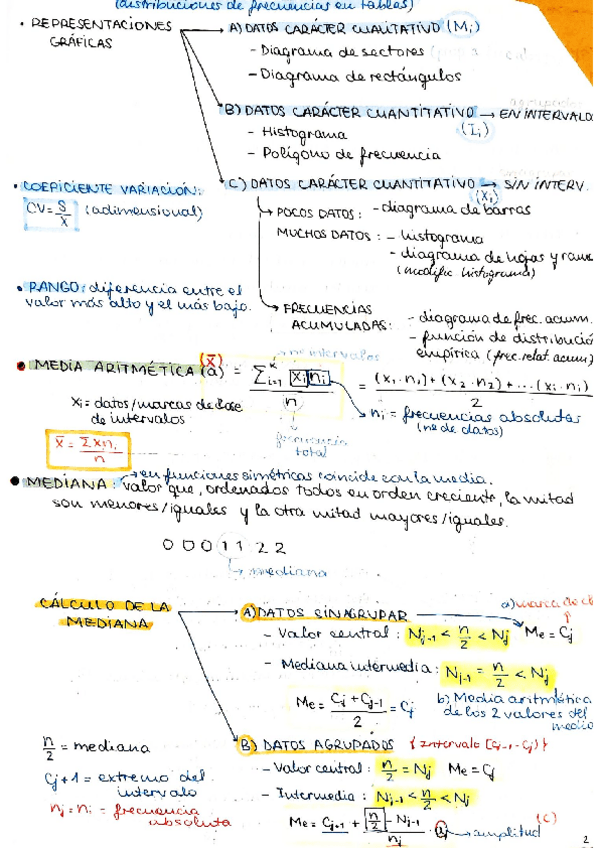 (distribuciones de frecuencias en tablas)
• REPRESENTACIONES GRÁFICAS
A) DATOS CARÁCTER CUALITATIVO (Mi)
- Diagrama de sectores
- Diagrama de rectángulos
B) DATOS CARÁCTER CUANTITATIVO → EN INTERVALOS
(Ii)
- Histograma
- Polígono de frecuencia
• COEFICIENTE VARIACIÓN:
CV = S/x̄ (adimensional)
C) DATOS CARÁCTER CUANTITATIVO → SIN INTERV.
(Xi)
→ POCOS DATOS: - diagrama de barras
MUCHOS DATOS: - histograma
- diagrama de hojas y ramas
(modific histograma)
• RANGO: diferencia entre el
valor más alto y el más bajo.
→ FRECUENCIAS ACUMULADAS: - diagrama de frec. acum.
- función de distribució
empírica (frec. relat. acum)
nº intervalos
• MEDIA ARITMÉTICA (a) (x̄) = Σ i=1 k xi ni / n = (x1·n1)+(x2·n2)+...(xi·ni) / 2
xi = datos/marcas de clase
de intervalos
→ ni = frecuencias absolutas
(nº de datos)
frecuencia
total
x̄ = Σxini / n
→ en funciones simétricas coincide con la media.
• MEDIANA: valor que, ordenados todos en orden creciente, la mitad
son menores/iguales y la otra mitad mayores/iguales.
0 0 0 1 1 2 2
→ mediana
CÁLCULO DE LA
MEDIANA
a) marca de cl
A) DATOS SIN AGRUPAR → Me = Cj
- Valor central: Nj-1 < n/2 < Nj
- Mediana intermedia: Nj-1 = n/2 < Nj
Me = Cj + Cj-1 / 2 = Cj
b) Media aritmética
de los 2 valores del
medio
n/2 = mediana
Cj+1 = extremo del
intervalo
nj = ni = frecuencia
absoluta
B) DATOS AGRUPADOS {Intervalo [Cj-1 - Cj)}
- Valor central: n/2 = Nj Me = Cj
- Intermedia: Nj-1 < n/2 < Nj
Me = Cj+1 + n/2 - Nj-1 / nj · aj → amplitud
(C)
2